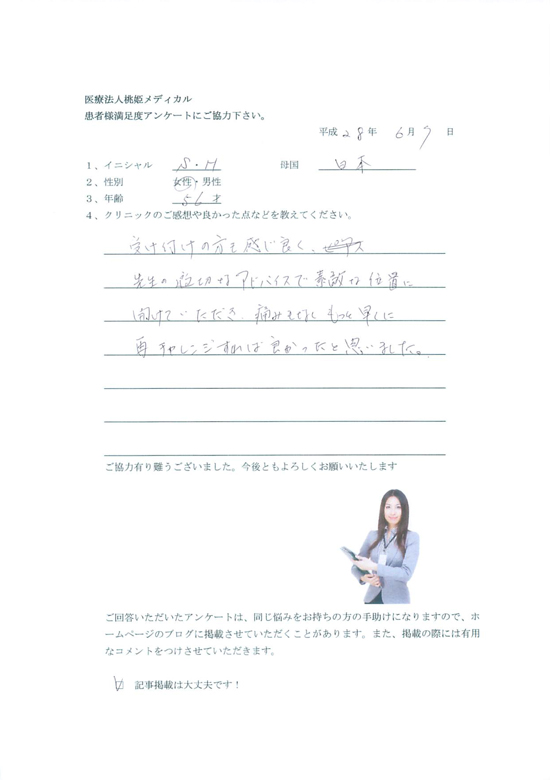 医療法人桃姫メディカル
患者様満足度アンケートにご協力下さい。
平成 28 年 6 月 7 日
1、イニシャル S・H 母国 日本
2、性別 女性・男性
3、年齢 56才
4、クリニックのご感想や良かった点などを教えてください。
受け付けの方も感じ良く、
先生の適切なアドバイスで素敵な位置に
開けていただき、痛みもなく もっと早くに
再チャレンジすれば良かったと思いました。
ご協力有り難うございました。今後ともよろしくお願いいたします
ご回答いただいたアンケートは、同じ悩みをお持ちの方の手助けになりますので、ホ
ームページのブログに掲載させていただくことがあります。また、掲載の際には有用
なコメントをつけさせていただきます。
記事掲載は大丈夫です！